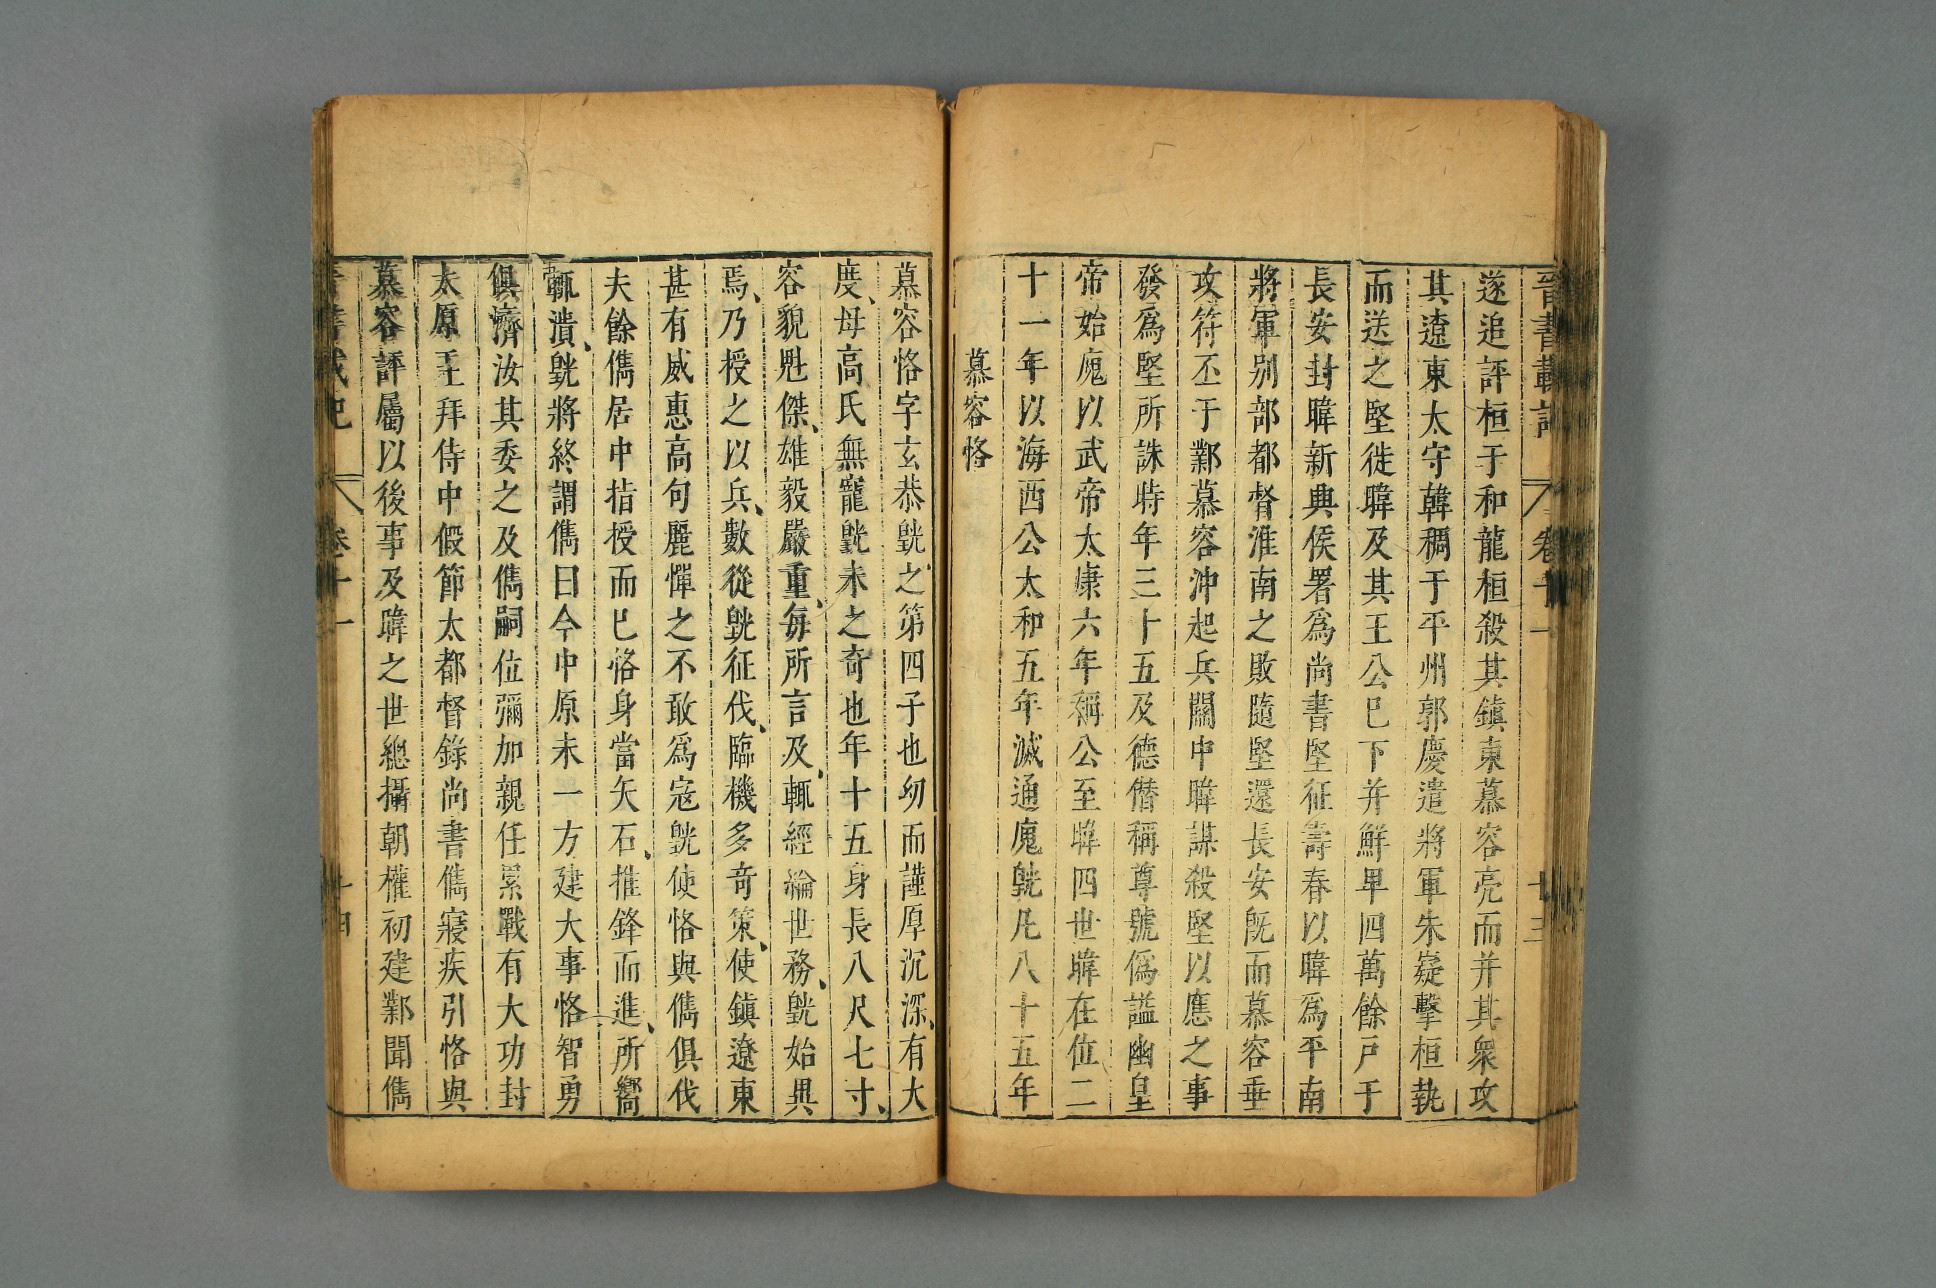 晉書載記 卷十一 十三
遂追評桓于和龍桓殺其鎮東慕容亮而并其衆攻
其遼東太守韓稠于平州郭慶遣將軍朱嶷擊桓執
而送之堅徙暐及其王公巳下并鮮卑四萬餘戸于
長安封暐新興侯署爲尚書堅征壽春以暐爲平南
將軍别部都督淮南之敗隨堅還長安旣而慕容垂
攻符丕于鄴慕容沖起兵關中暐謀殺堅以應之事
發爲堅所誅時年三十五及德僭稱尊號僞謚幽皇
帝始廆以武帝太康六年稱公至暐四世暐在位二
十一年以海西公太和五年滅通廆皝凡八十五年
慕容恪
慕容恪字玄恭皝之第四子也幼而謹厚沉深、有大
度、母高氏無寵皝未之奇也年十五身長八尺七寸、
容貌魁傑、雄毅嚴重、每所言及、輒經綸世務、皝始異
焉、乃授之以兵、數從皝征伐、臨機多奇策、使鎮遼東
甚有威惠高句麗憚之不敢爲宼皝使恪與儁俱伐
夫餘儁居中指授而巳恪身當矢石、推鋒而進、所嚮
輒潰、皝將終謂儁曰今中原未一方建大事恪智勇
俱濟汝其委之及儁嗣位彌加親任累戰有大功封
太原王拜侍中假節太都督錄尚書儁寢疾引恪與
慕容評屬以後事及暐之世總攝朝權初建鄴聞儁
晉書載記 卷十一 十四